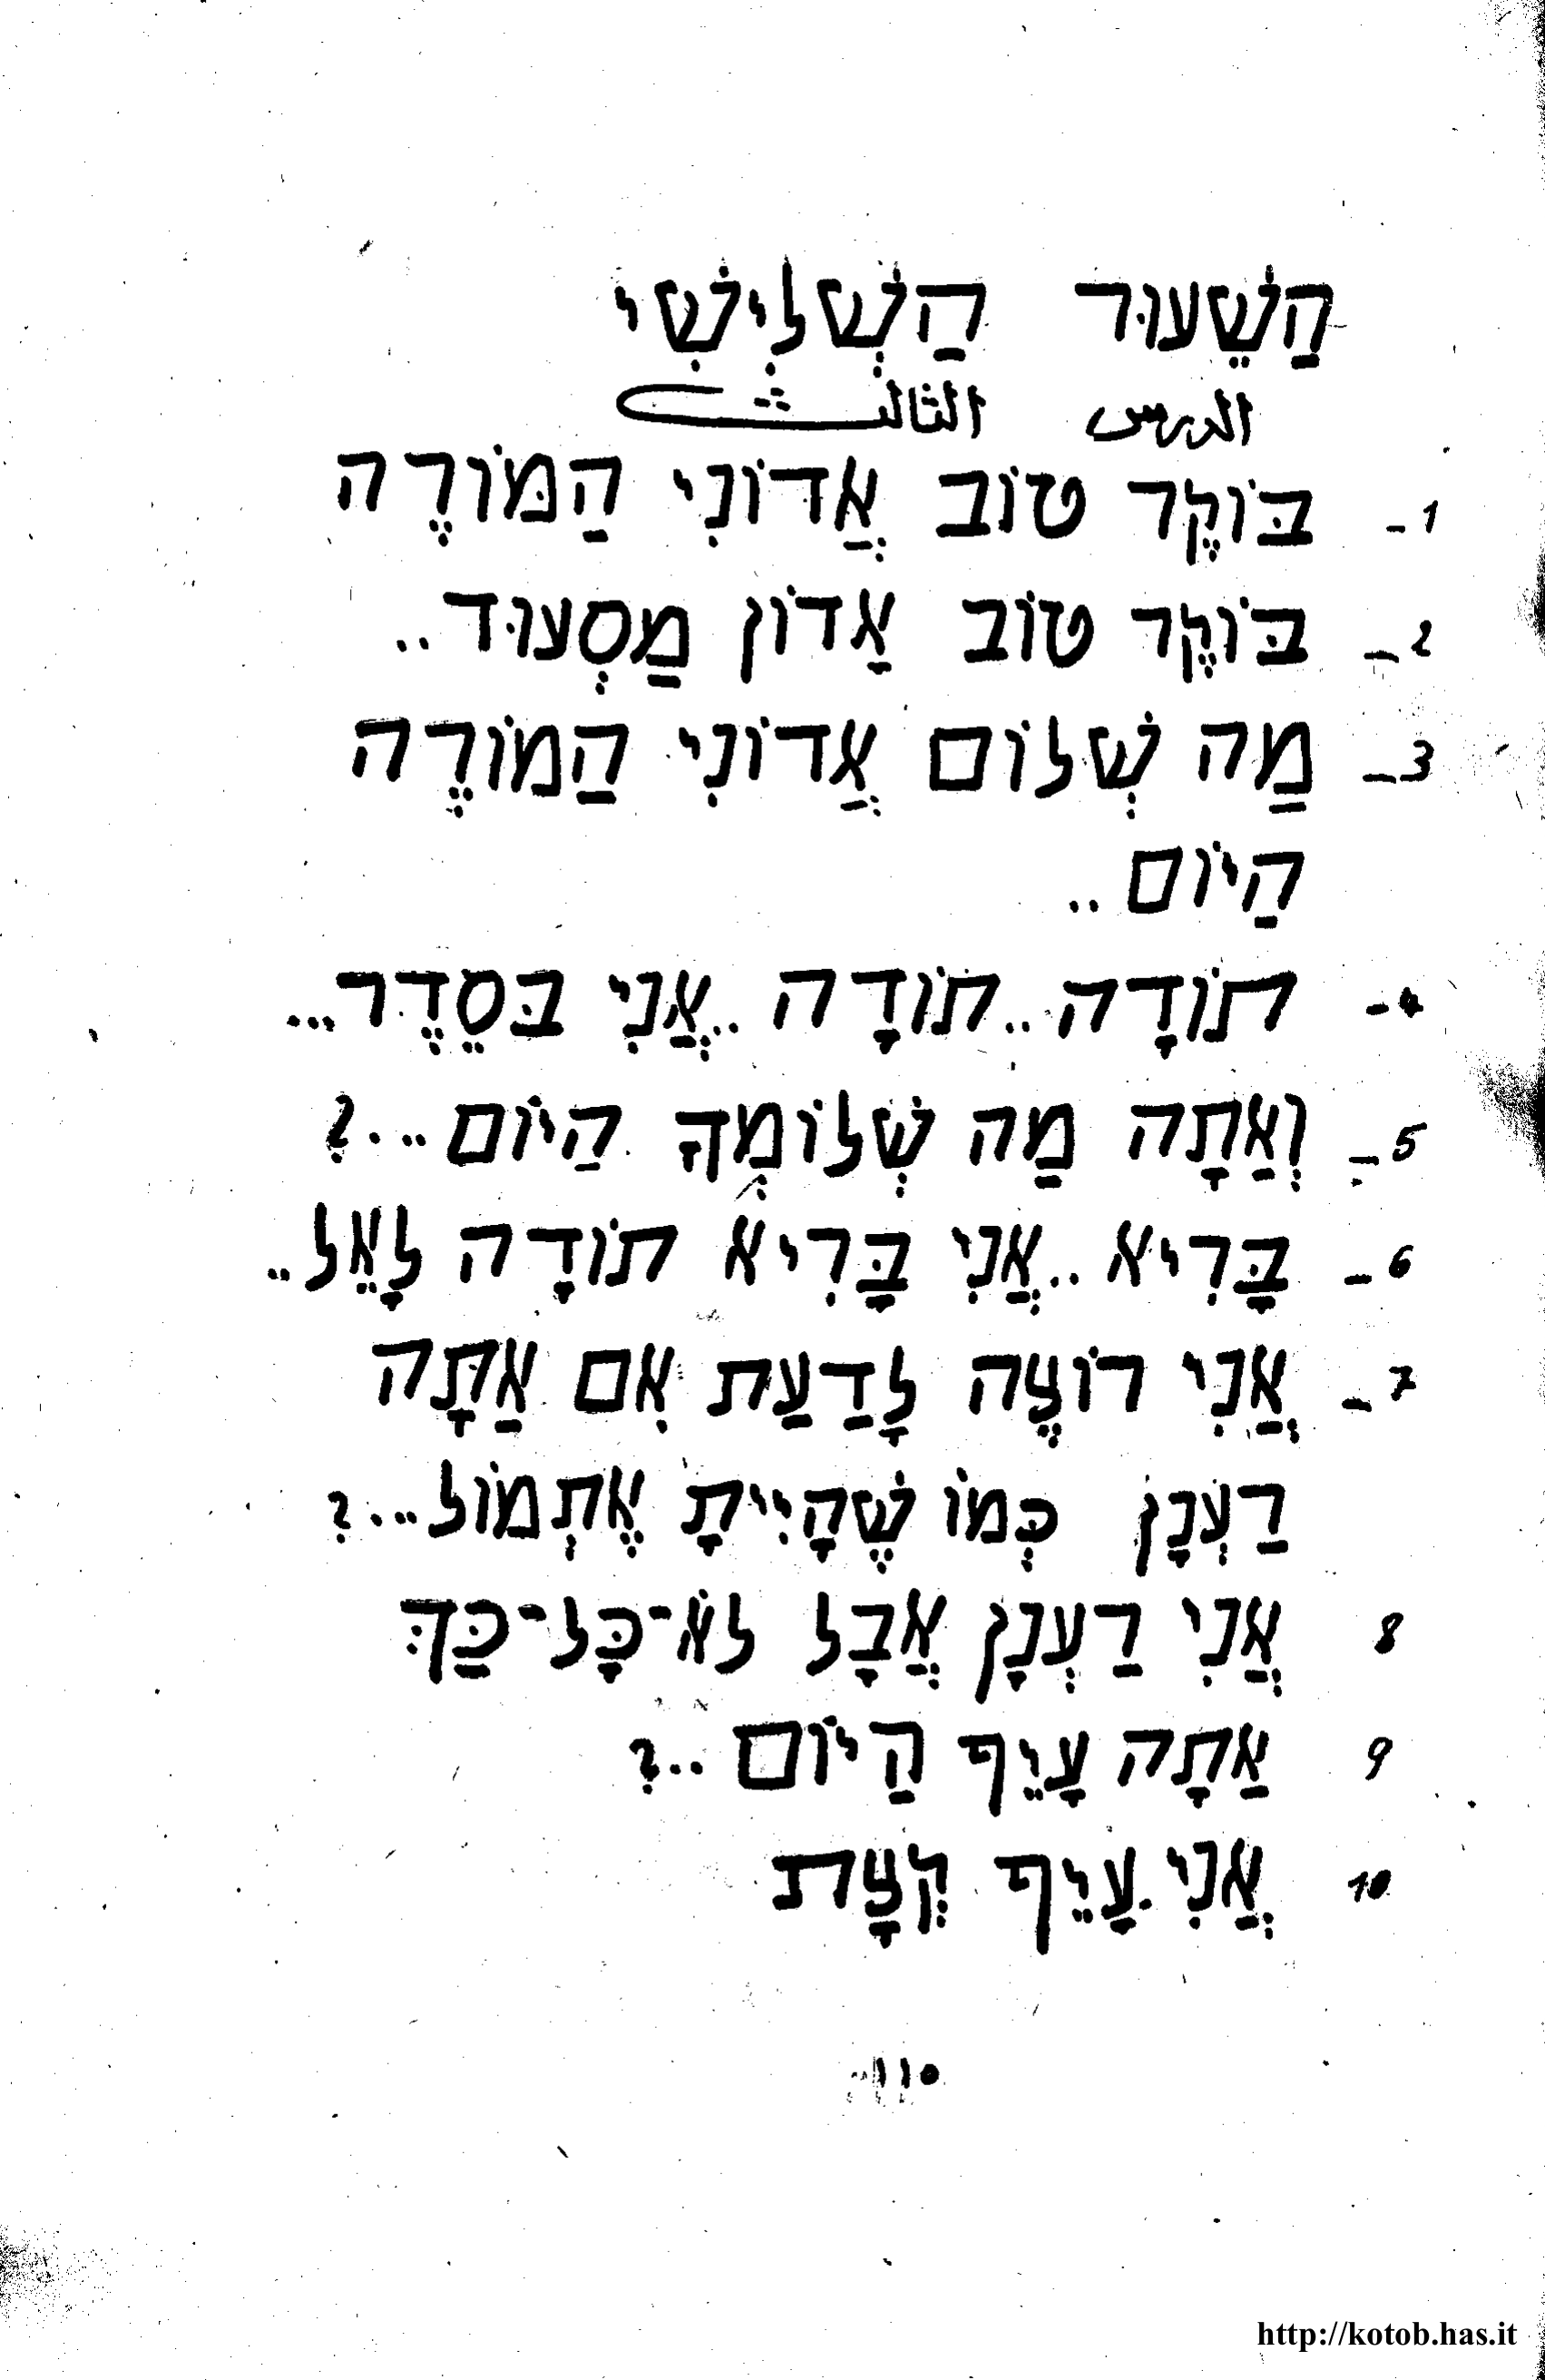 הַשֵׁעוּר הַשְׁלִישִׁי
الدرس الثالث
1- בּוֹקֶר טוֹב אֲדוֹנִי הַמּוֹרֶה
2- בּוֹקֶר טוֹב אַדוֹן מַסְעוּד..
3- מַה שְׁלוֹם אֲדוֹנִי הַמוֹרֶה
הַיוֹם..
4- תוֹדָה..תוֹדָה..אֲנִי בּסֵדֶר...
5- וְאַתָה מַה שְׁלוֹמְךָ הַיוֹם...?
6- בָּרִיא..אֲנִי בָּרִיא תוֹדָה לָאֵל..
7- אֲנִי רוֹצֶה לָדַעַת אִם אַתָּה
רַעְנָן כְּמוֹ שֶׁהָיִיתָ אֶתְמוֹל...?
8 אֲנִי רַעְנָן אֲבָל לֹא־כָּל־כַּךְּ
9 אַתָה עָיֵף הַיוֹם..?
10 אֲנִי עָיֵף קְצָת
http://kotob.has.it